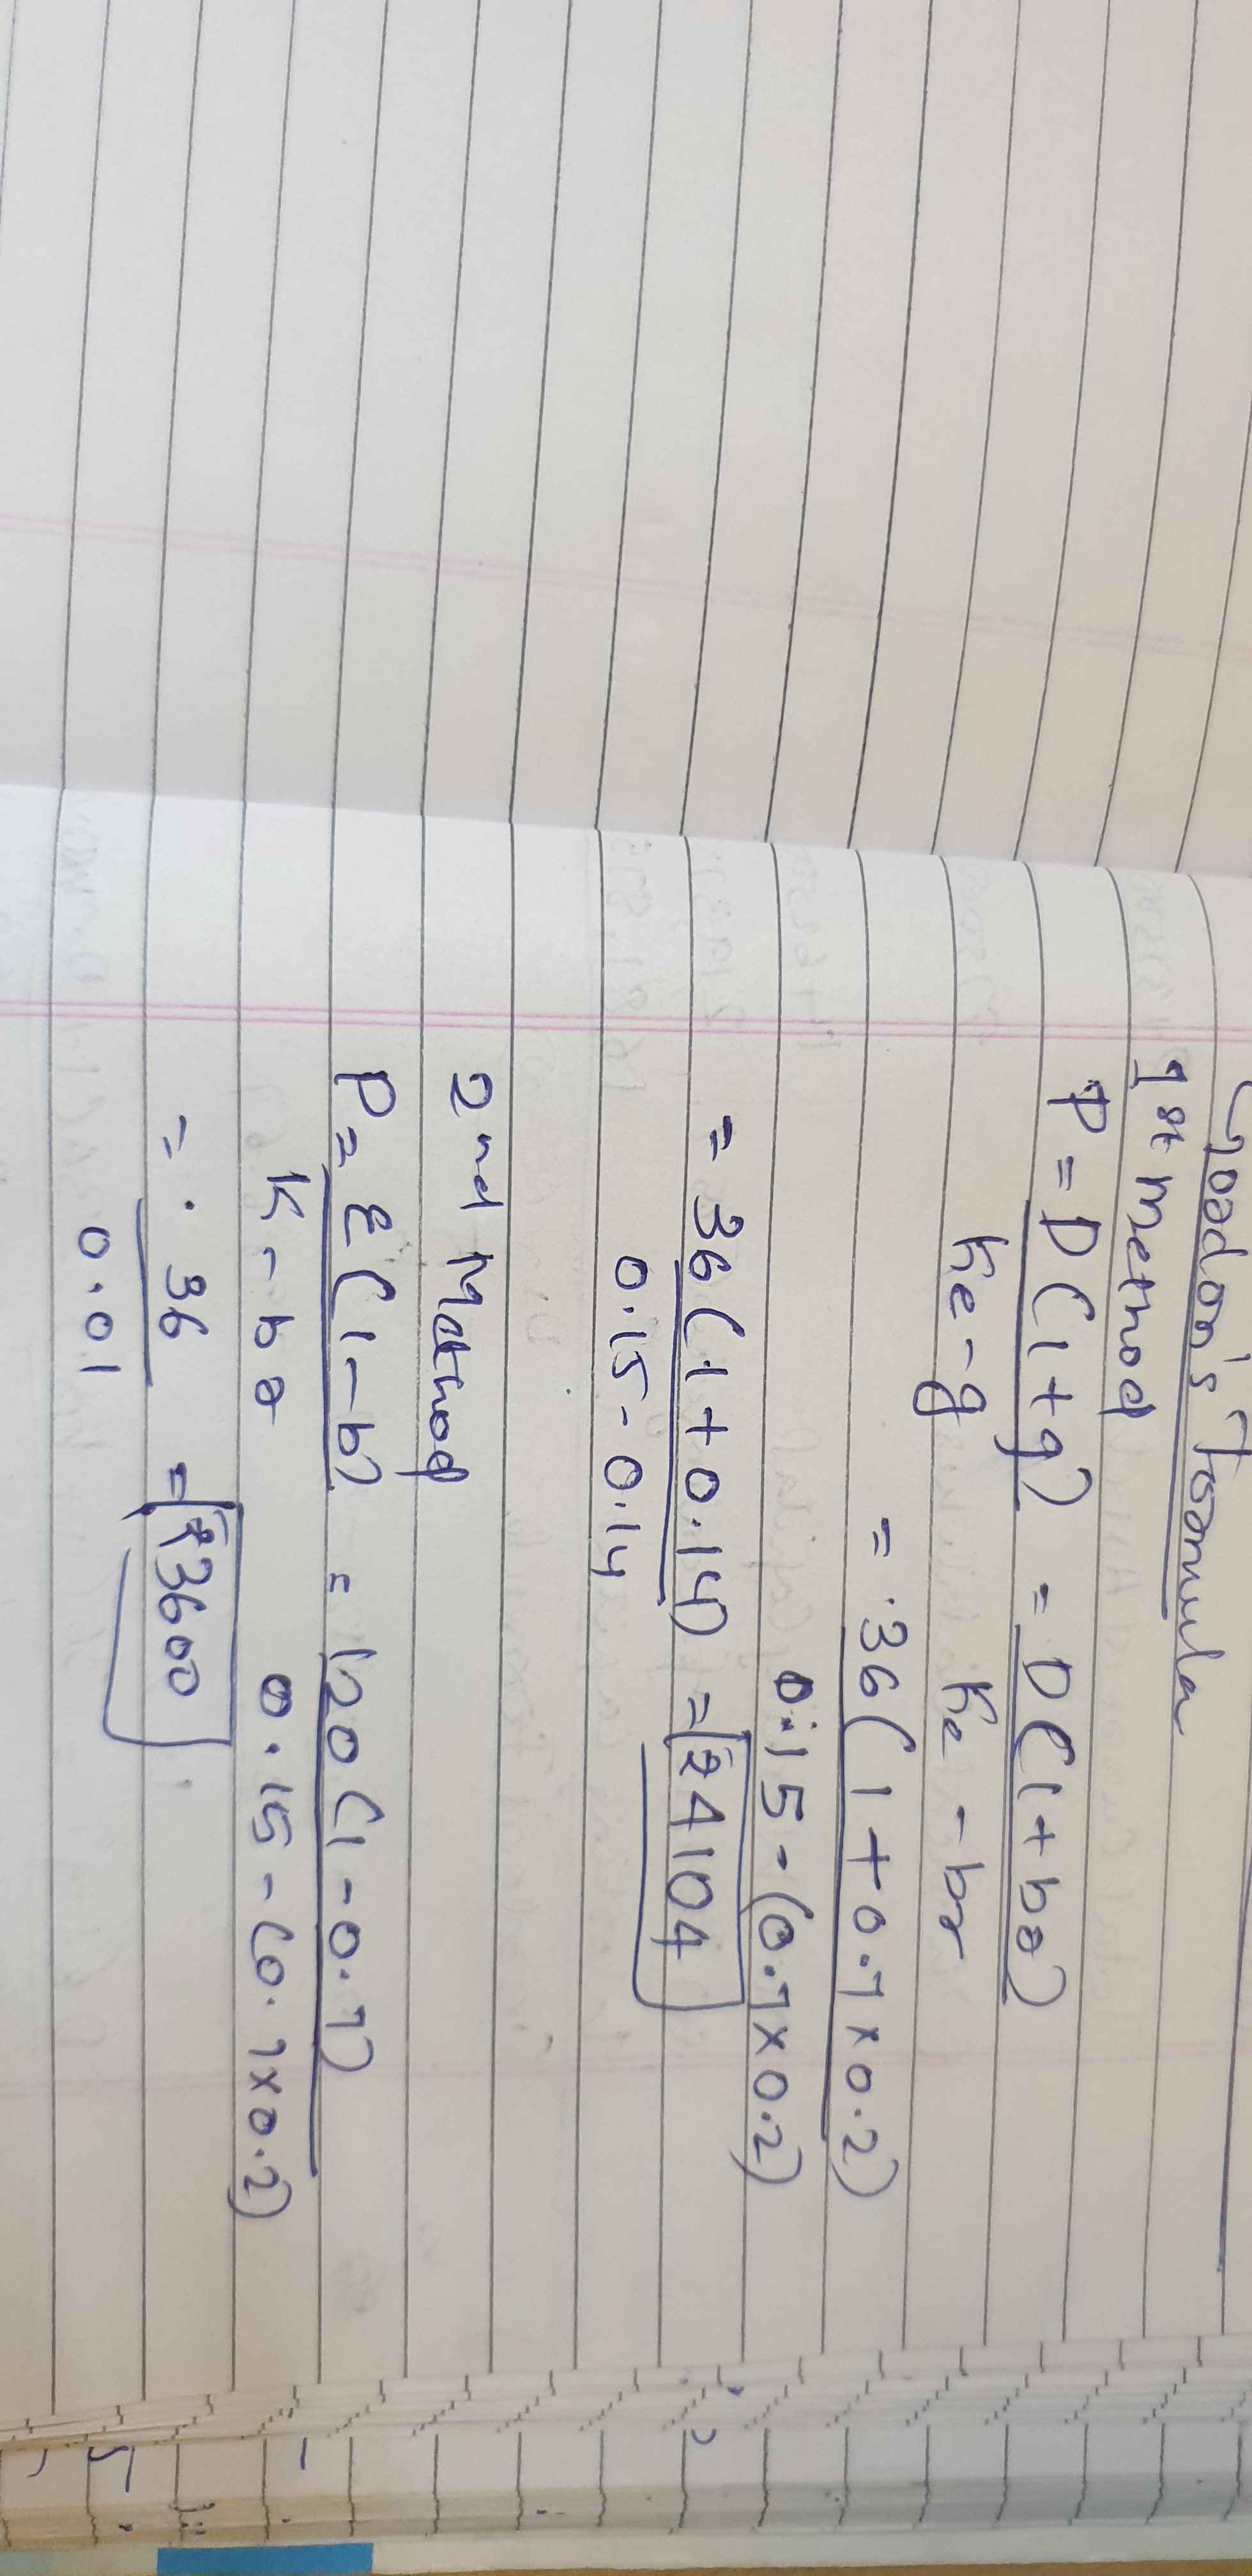 Goodon's Foomular
1st Method
P = D(1+g) = D(1+br)
Ke-g Ke-br
= 36(1+0.7×0.2)
0.15-(0.7×0.2)
= 36(1+0.14) = ₹4104
0.15-0.14
2nd Method
P = E(1-b) = 120(1-0.7)
K-br 0.15-(0.7×0.2)
= 36 = ₹3600
0.01